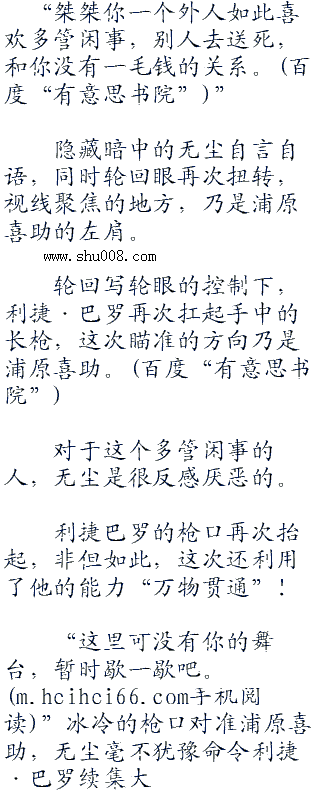 “桀桀你一个外人如此喜
欢多管闲事，别人去送死，
和你没有一毛钱的关系。(百
度“有意思书院”)”
隐藏暗中的无尘自言自
语，同时轮回眼再次扭转，
视线聚焦的地方，乃是浦原
喜助的左肩。
www.shu008.com
轮回写轮眼的控制下，
利捷·巴罗再次扛起手中的
长枪，这次瞄准的方向乃是
浦原喜助。(百度“有意思书
院”)
对于这个多管闲事的
人，无尘是很反感厌恶的。
利捷巴罗的枪口再次抬
起，非但如此，这次还利用
了他的能力“万物贯通”！
“这里可没有你的舞
台，暂时歇一歇吧。
(m.hcihci66.com手机阅
读)”冰冷的枪口对准浦原喜
助，无尘毫不犹豫命令利捷
·巴罗续集大